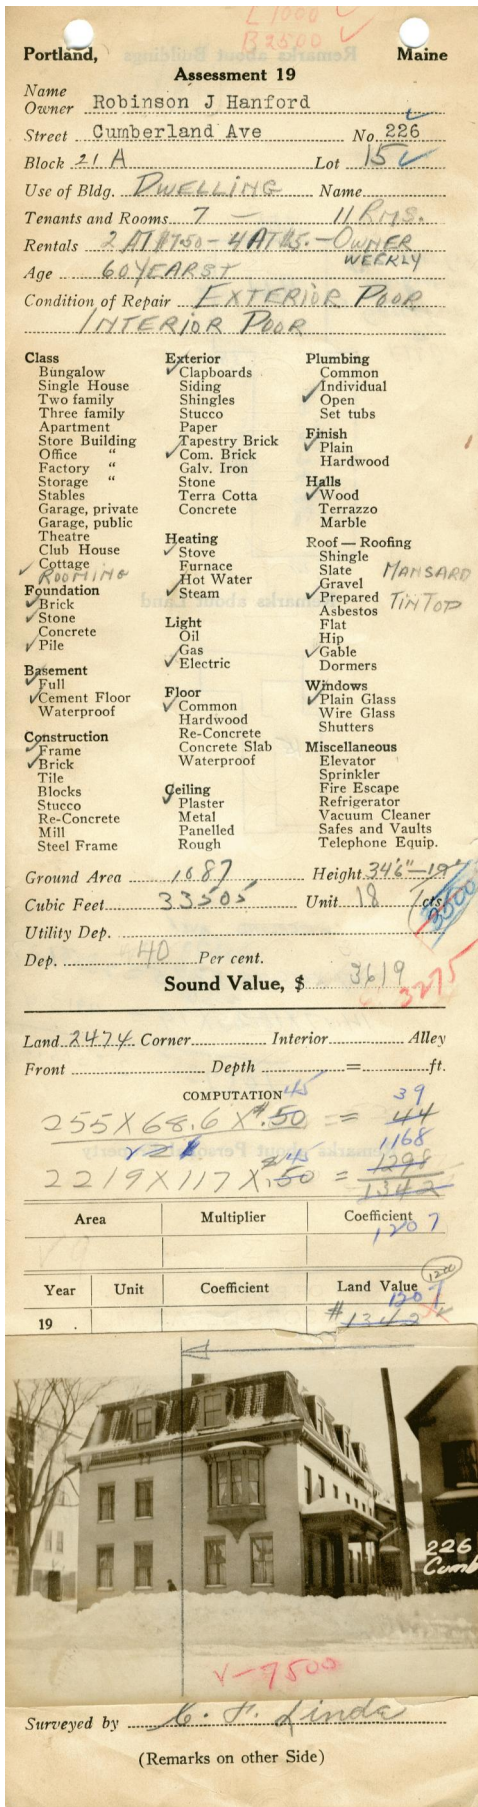 L 1000 ✓
B 2500 ✓
Portland, Maine
Assessment 19
Name
Owner Robinson J Hanford
Street Cumberland Ave No. 226
Block 21 A Lot 15
Use of Bldg. DWELLING Name
Tenants and Rooms 7 — 11 RMS.
Rentals 2 AT $7.50 - 4 AT $5. - OWNER
WEEKLY
Age 60 YEARS +
Condition of Repair EXTERIOR POOR
INTERIOR POOR
Class
Bungalow
Single House
Two family
Three family
Apartment
Store Building
Office "
Factory "
Storage "
Stables
Garage, private
Garage, public
Theatre
Club House
✓ Cottage
ROOMING
Foundation
✓ Brick
✓ Stone
Concrete
✓ Pile
Basement
✓ Full
✓ Cement Floor
Waterproof
Construction
✓ Frame
✓ Brick
Tile
Blocks
Stucco
Re-Concrete
Mill
Steel Frame
Exterior
✓ Clapboards
Siding
Shingles
Stucco
Paper
Tapestry Brick
✓ Com. Brick
Galv. Iron
Stone
Terra Cotta
Concrete
Heating
✓ Stove
Furnace
Hot Water
✓ Steam
Light
Oil
Gas
✓ Electric
Floor
✓ Common
Hardwood
Re-Concrete
Concrete Slab
Waterproof
Ceiling
✓ Plaster
Metal
Panelled
Rough
Plumbing
Common
Individual
✓ Open
Set tubs
Finish
✓ Plain
Hardwood
Halls
✓ Wood
Terrazzo
Marble
Roof — Roofing
Shingle
Slate MANSARD
Gravel
✓ Prepared TIN TOP
Asbestos
Flat
Hip
✓ Gable
Dormers
Windows
✓ Plain Glass
Wire Glass
Shutters
Miscellaneous
Elevator
Sprinkler
Fire Escape
Refrigerator
Vacuum Cleaner
Safes and Vaults
Telephone Equip.
Ground Area 1087 Height 34'6"
Cubic Feet 33505 Unit 18 cts
3500
Utility Dep.
Dep. 40 Per cent.
Sound Value, $ 3619
3275
Land 2474 Corner Interior Alley
Front Depth = ft.
COMPUTATION
45 39
255 X 68.6 X $.50 = 44
1168
45
2219 X 117 X $.50 = 1298
1342
Area Multiplier Coefficient
1207
1200
Year Unit Coefficient Land Value
1207
19 . $ 1342
226
Cumb
V-7500
Surveyed by C. F. Linda
(Remarks on other Side)